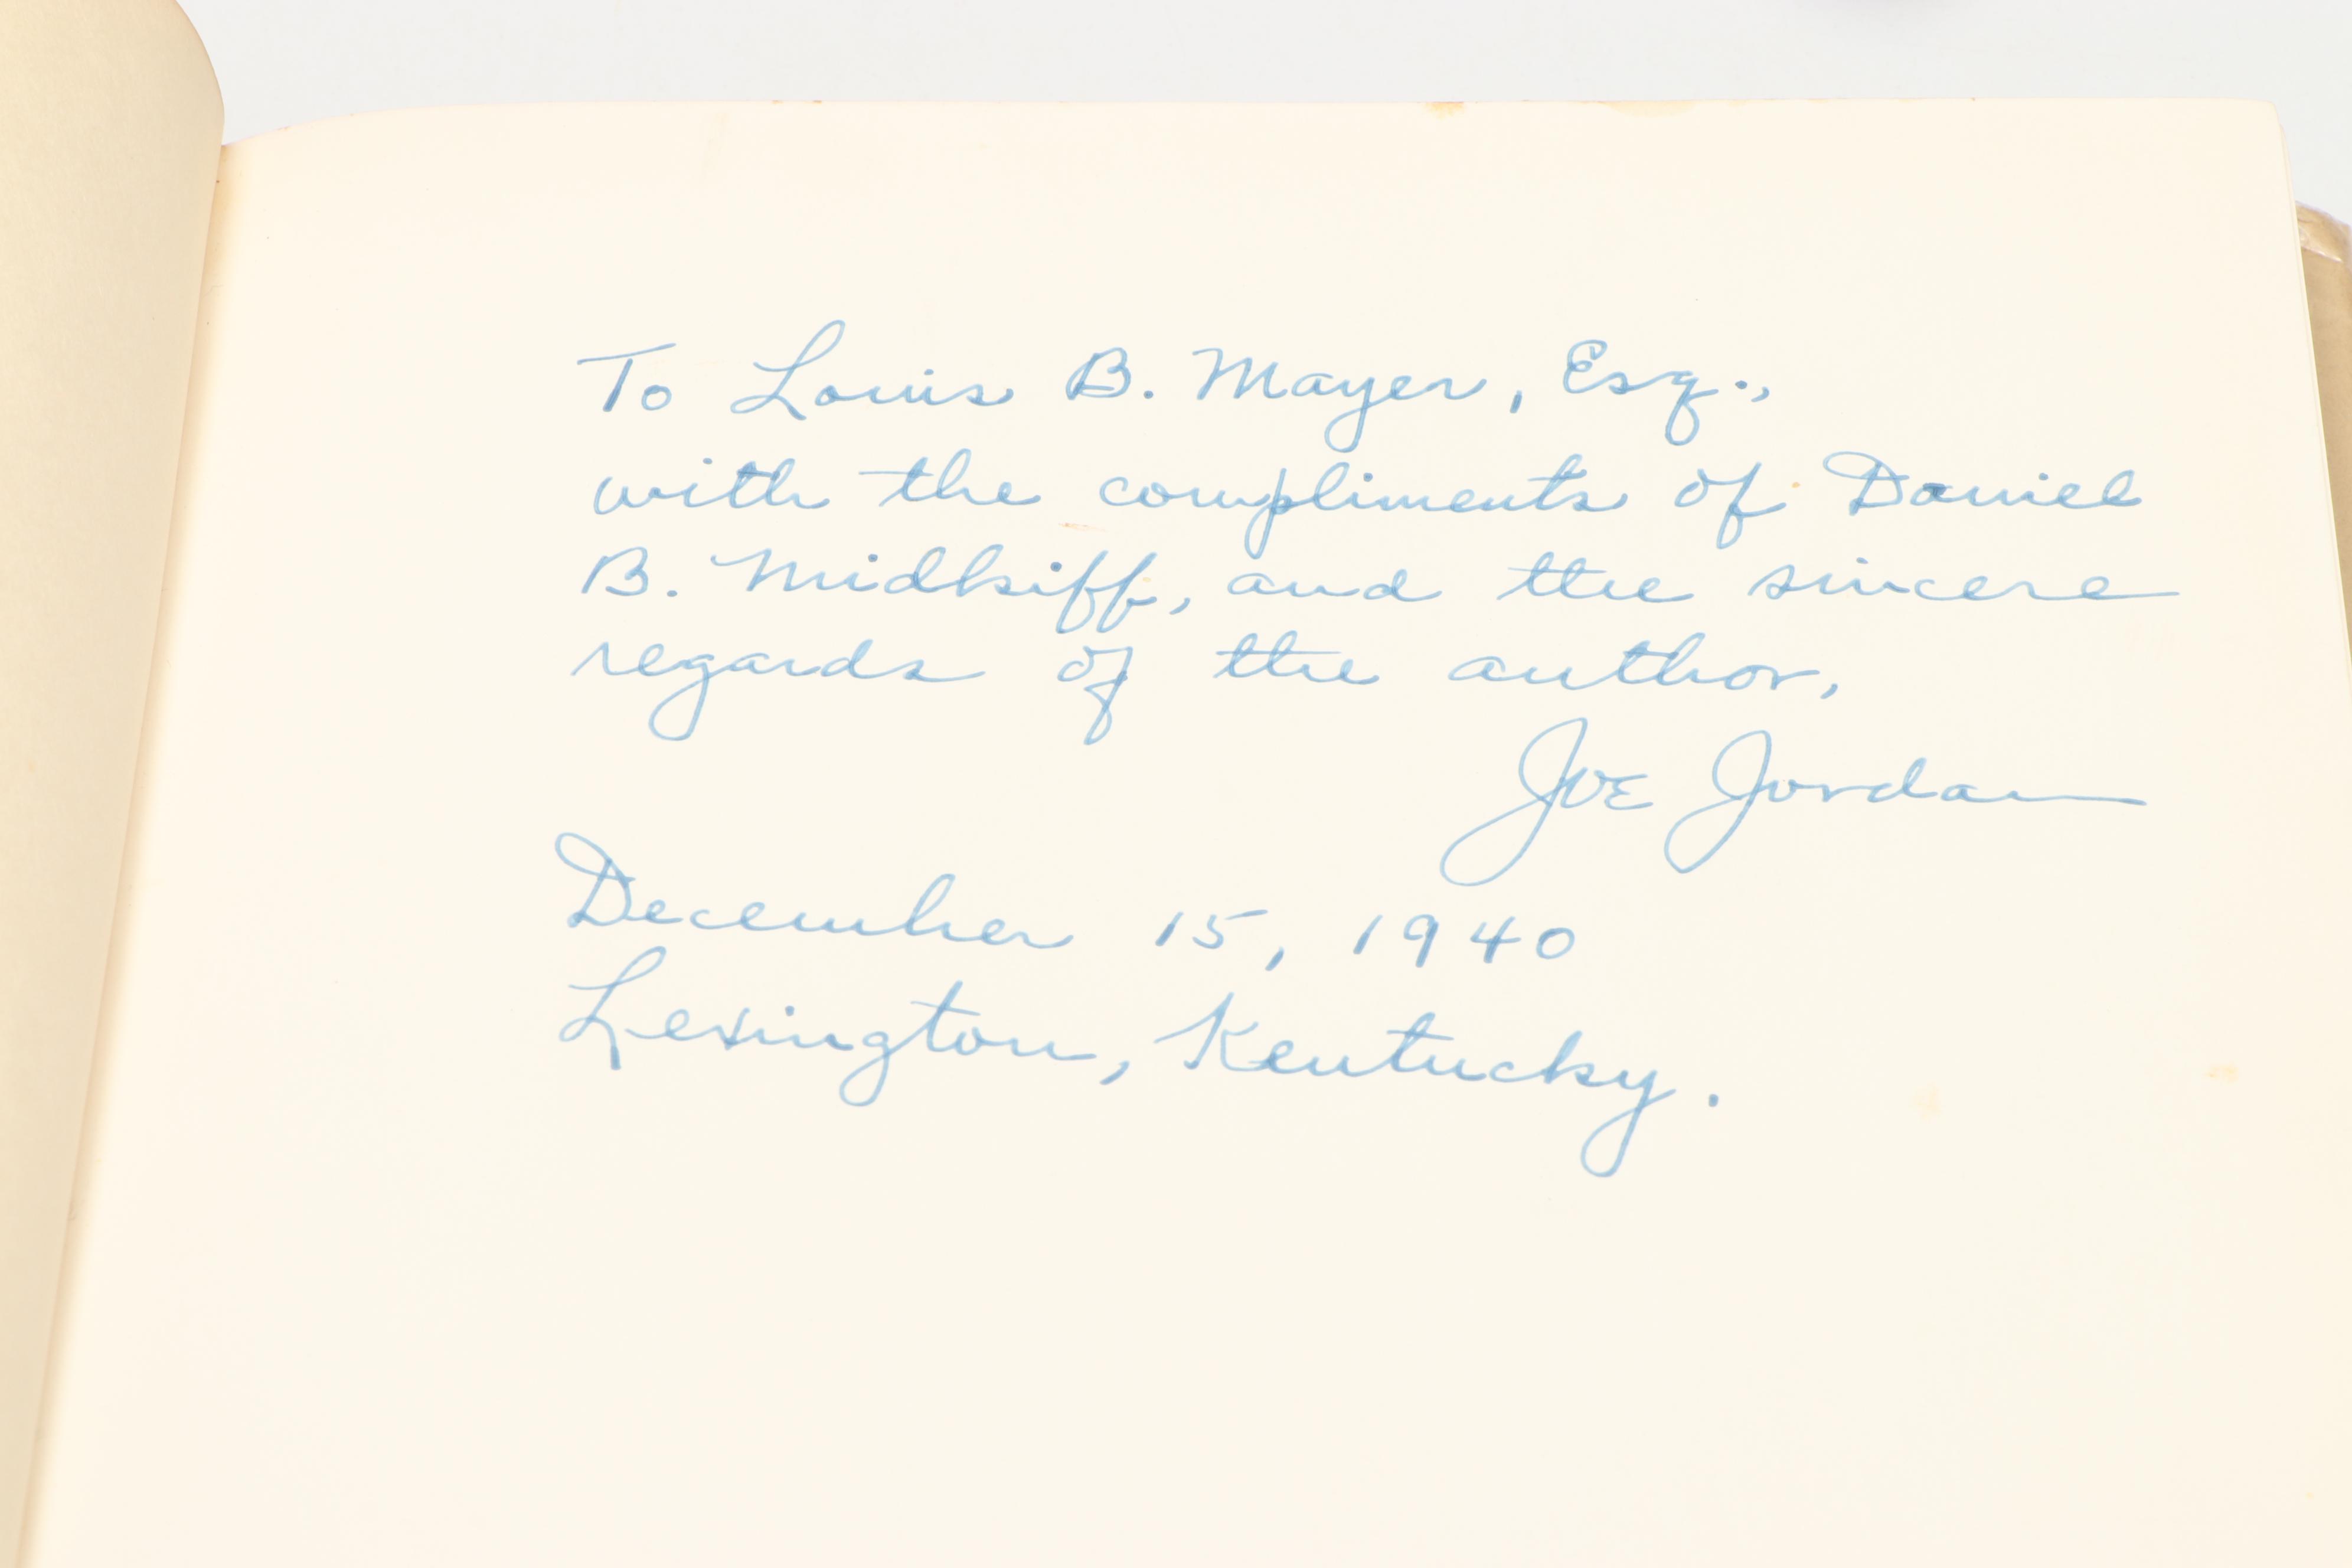 To Louis B. Mayer, Esq.,
with the compliments of Daniel
B. Midkiff, and the sincere
regards of the author,
Joe Jordan
December 15, 1940
Lexington, Kentucky.